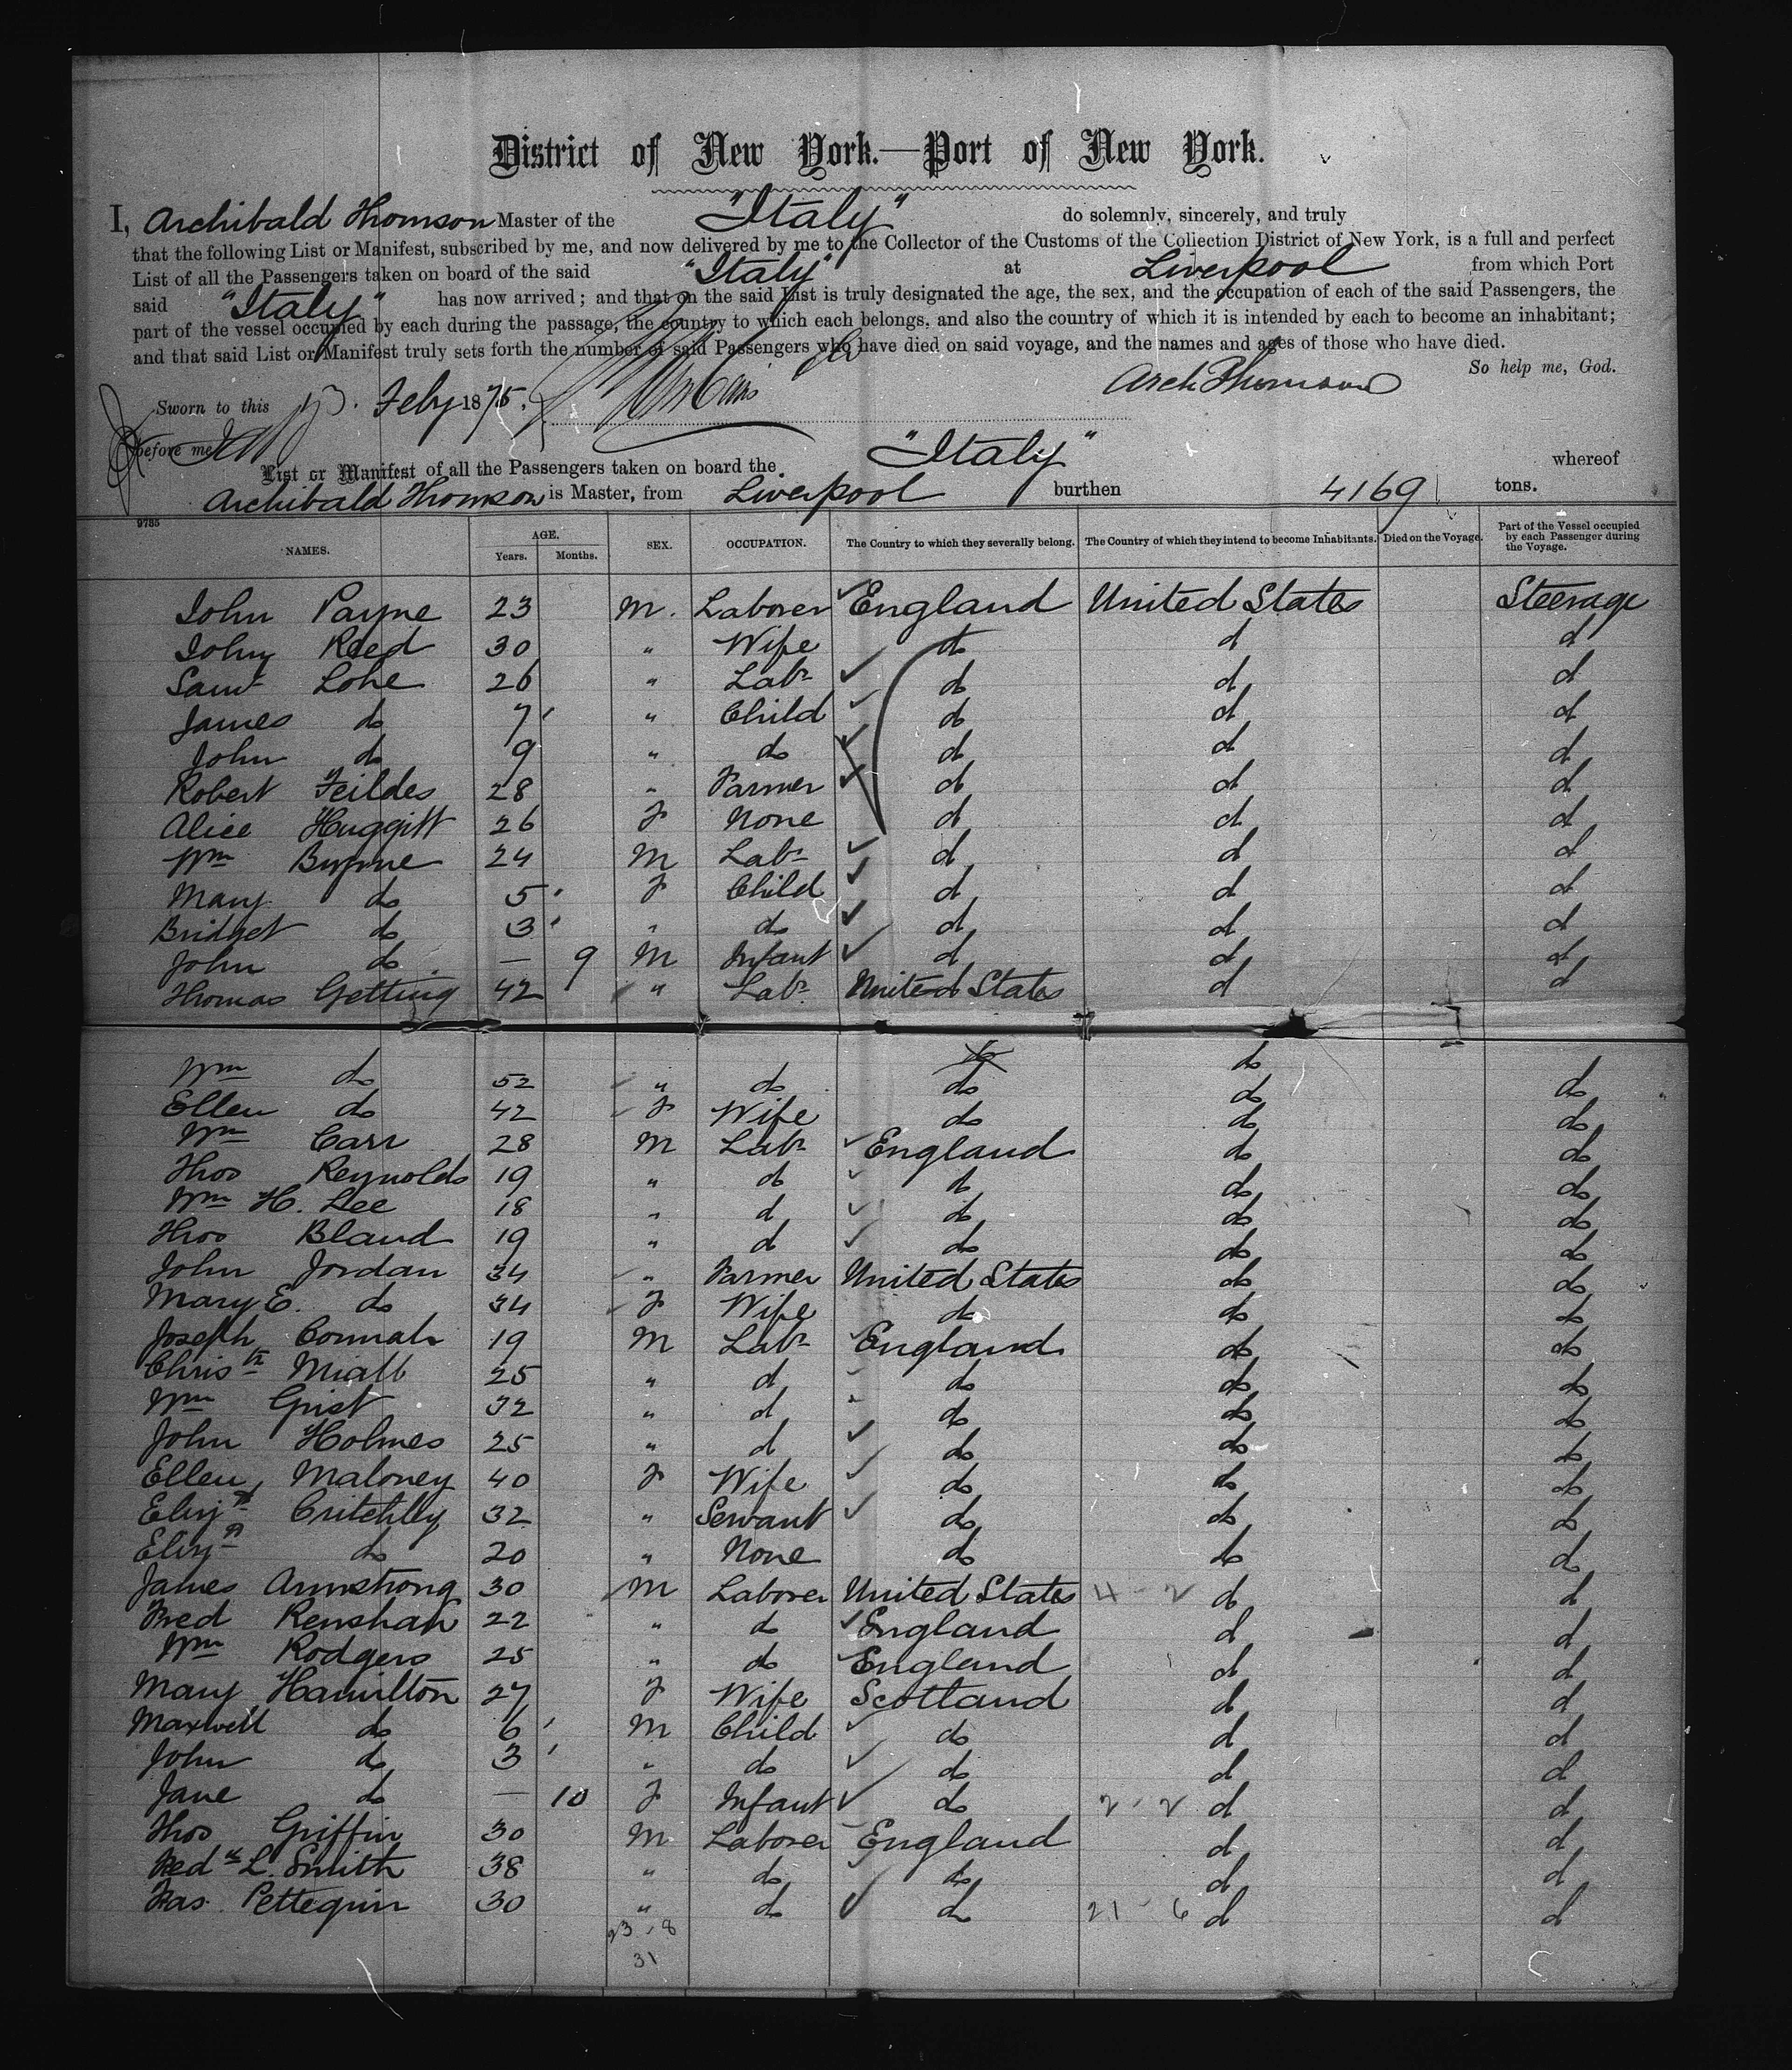 District of New York.—Port of New York.
I, Archibald Thomson Master of the "Italy" do solemnly, sincerely, and truly
that the following List or Manifest, subscribed by me, and now delivered by me to the Collector of the Customs of the Collection District of New York, is a full and perfect
List of all the Passengers taken on board of the said "Italy" at Liverpool from which Port
said "Italy" has now arrived; and that on the said List is truly designated the age, the sex, and the occupation of each of the said Passengers, the
part of the vessel occupied by each during the passage, the country to which each belongs, and also the country of which it is intended by each to become an inhabitant;
and that said List or Manifest truly sets forth the number of said Passengers who have died on said voyage, and the names and ages of those who have died.
So help me, God.
Arch Thomson
Sworn to this 13. Feby 1875,
before me
List or Manifest of all the Passengers taken on board the "Italy" whereof
Archibald Thomson is Master, from Liverpool burthen 4169 tons.
9785
NAMES. AGE. Years. Months. SEX. OCCUPATION. The Country to which they severally belong. The Country of which they intend to become Inhabitants. Died on the Voyage. Part of the Vessel occupied by each Passenger during the Voyage.
John Payne 23 M. Laborer England United States Steerage
John Reed 30 " Wife do d d
Saml Lohe 26 " Labr d d d
James do 7 " Child d d d
John do 9 " do d d d
Robert Feildes 28 " Farmer d d d
Alice Huggitt 26 F None d d d
Wm Byrne 24 M Labr d d d
Mary do 5 F Child d d d
Bridget do 3 " do d d d
John do — 9 M Infant d d d
Thomas Getting 42 " Labr United States d d
do do
Wm do 52 " do do do do
Ellen do 42 F Wife do do do
Wm Carr 28 M Labr England do do
Thos Reynolds 19 " do d do do
Wm H. Lee 18 " d do do do
Thos Bland 19 " d do do do
John Jordan 34 " Farmer United States do do
Mary E. do 34 F Wife do do do
Joseph Connah 19 M Labr England do do
Chrisr Miall 25 " d do do do
Wm Grist 32 " d do do do
John Holmes 25 " d do do do
Ellen Maloney 40 F Wife do do do
Elizth Critchly 32 " Servant do do do
Elizth do 20 " None do do do
James Armstrong 30 M Laborer United States 4 - 2 d d
Fred Renshah 22 " do England d d
Wm Rodgers 25 " do England d d
Mary Hamilton 27 F Wife Scotland d d
Maxwell do 6 M Child do d d
John do 3 " do do d d
Jane do — 10 F Infant do 2 - 2 d d
Thos Griffin 30 M Laborer England d d
Fredk L. Smith 38 " do do d d
Fras. Pettequin 30 " do d 21 - 6 d d
23 - 8
31